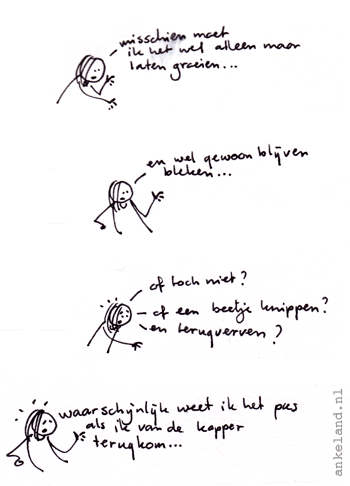 misschien moet
ik het wel alleen maar
laten groeien...
en wel gewoon blijven
bleken...
of toch niet?
of een beetje knippen?
en terugverven?
waarschijnlijk weet ik het pas
als ik van de kapper
terugkom...
ankeland.nl